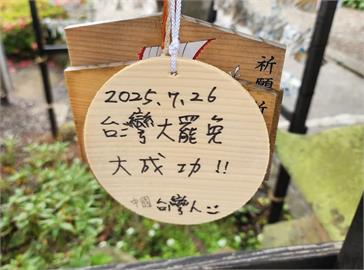 2025.7.26
台灣大罷免
大成功!!
中國 台灣人
祈願